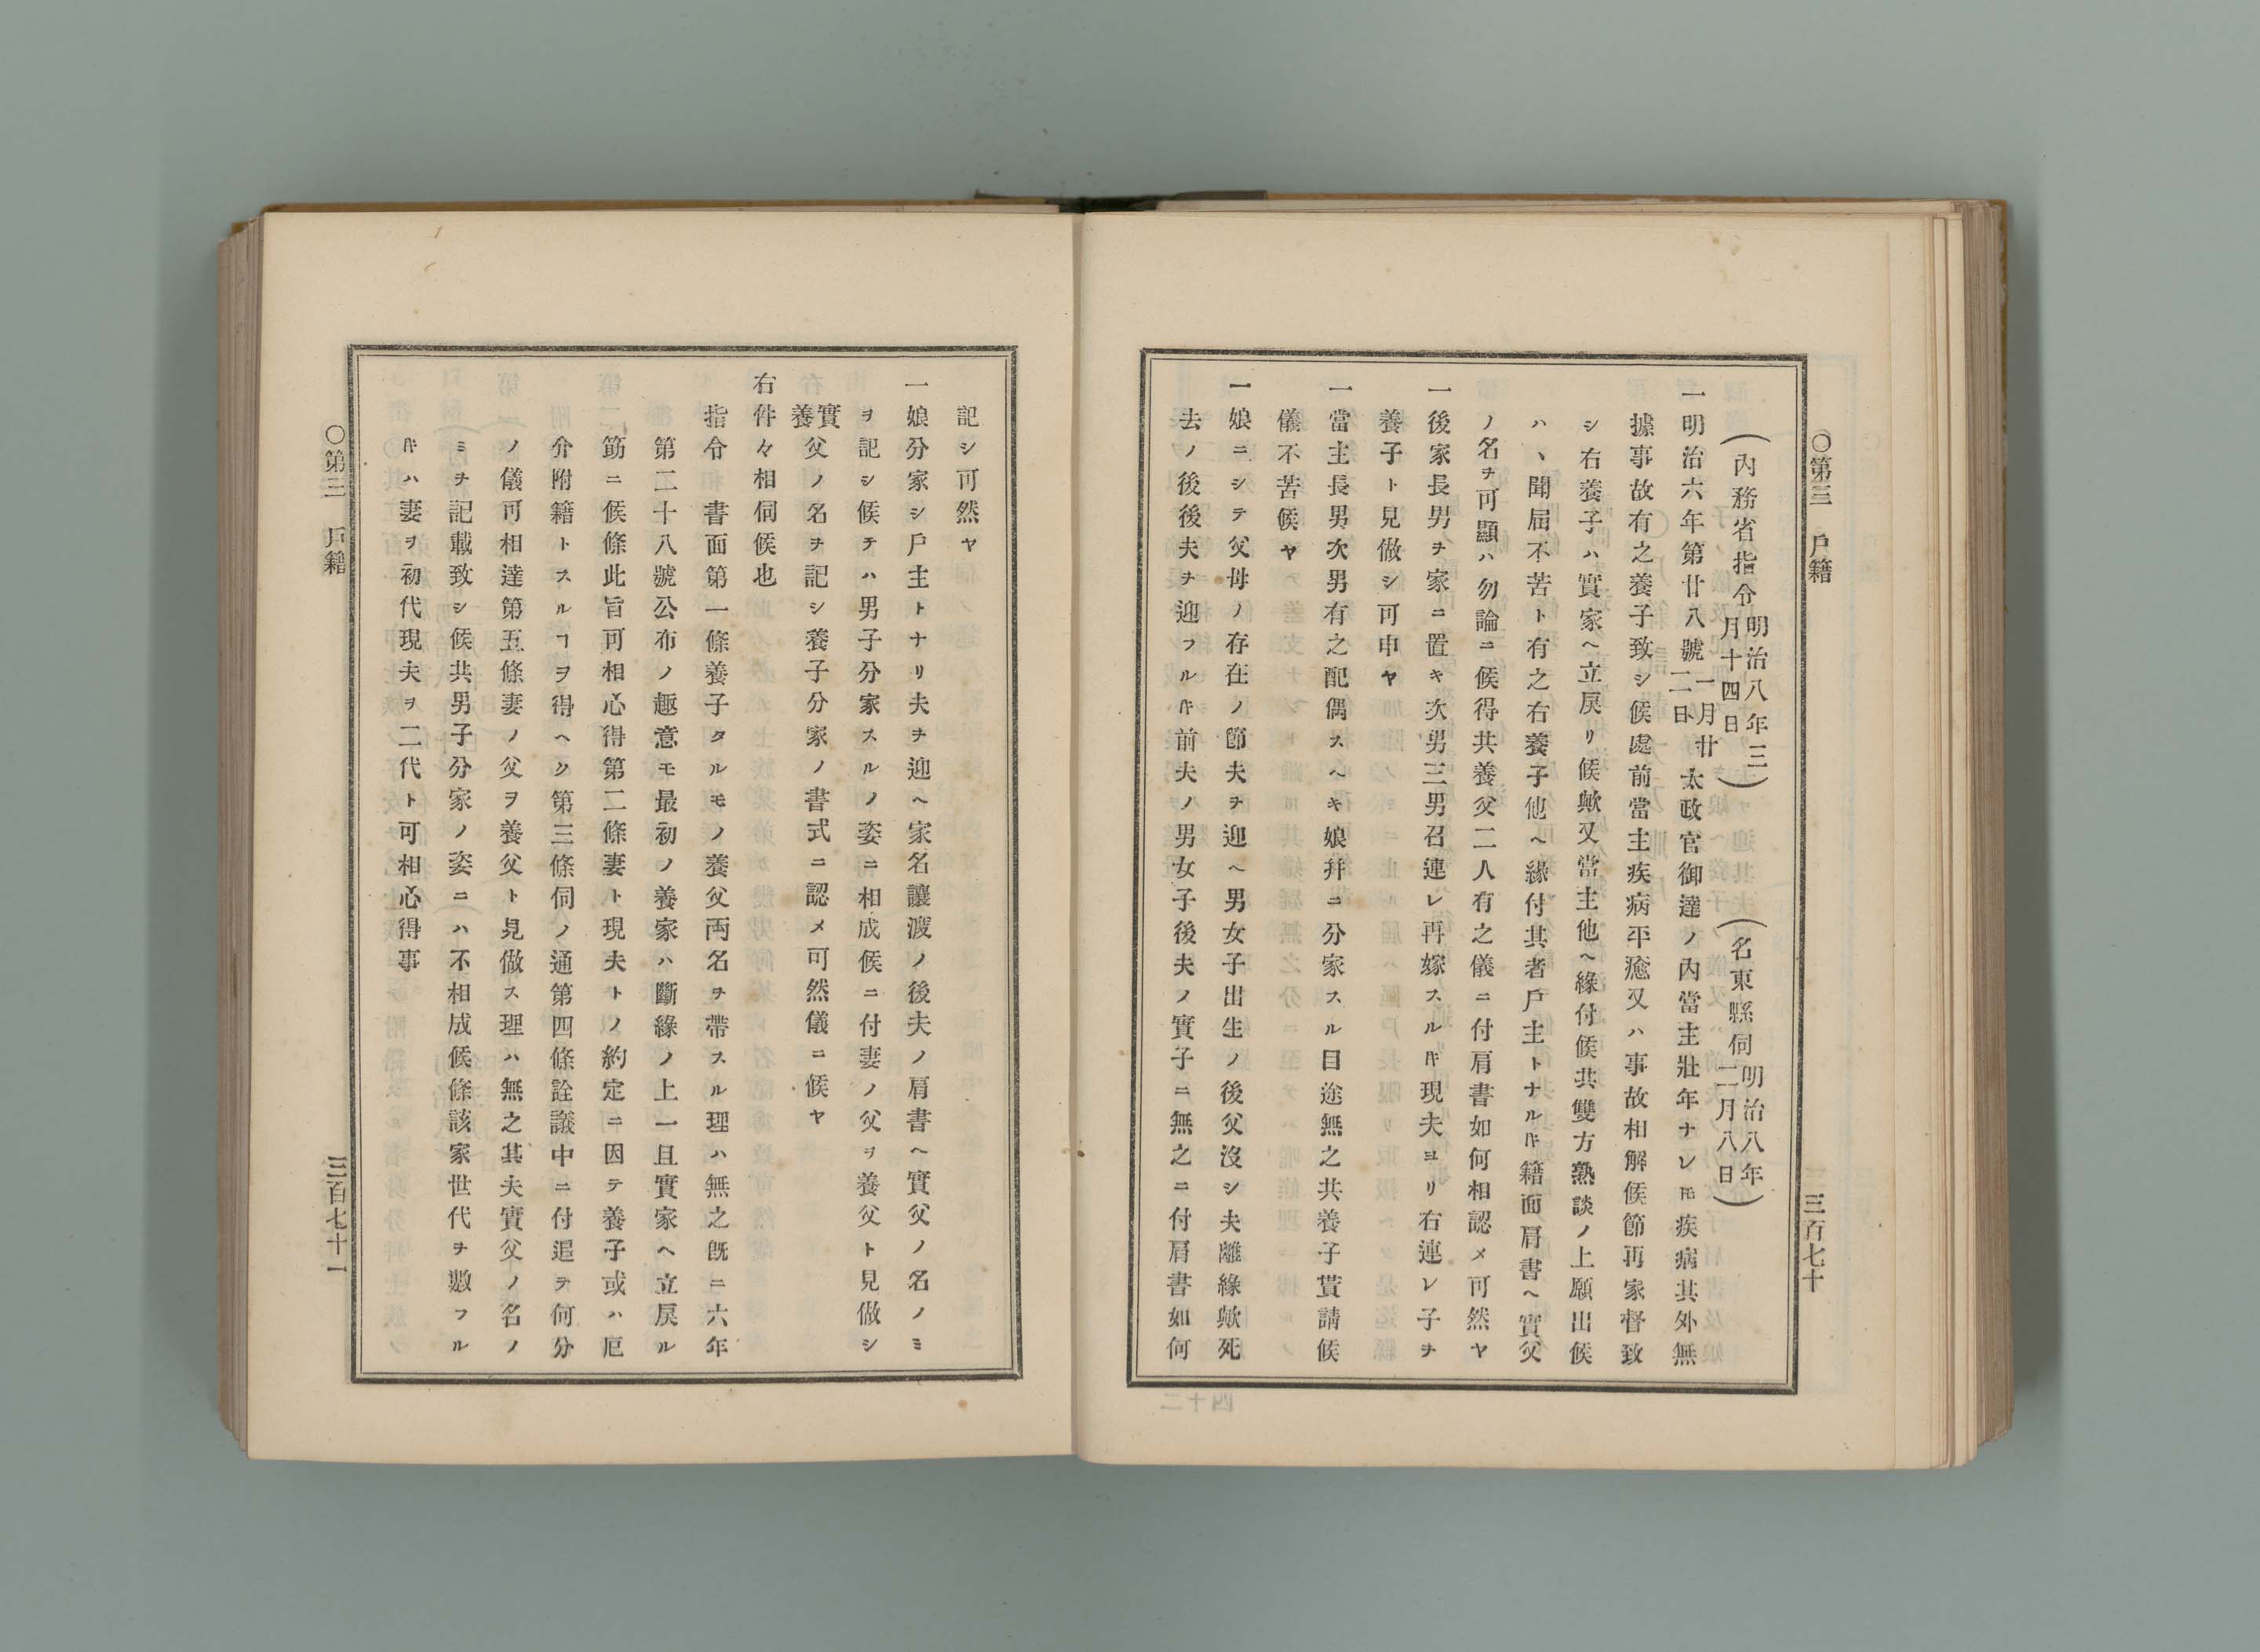 ○第三　戶籍
三百七十
（內務省指令 明治八年三月十四日）（名東縣伺 明治八年二月八日）
一明治六年第廿八號 一月廿二日 太政官御達ノ內當主壯年ナレ𪜈疾病其外無
據事故有之養子致シ候處前當主疾病平癒又ハ事故相解候節再家督致
シ右養子ハ實家ヘ立戾リ候歟又當主他ヘ緣付候共雙方熟談ノ上願出候
ハヽ聞屆不苦ト有之右養子他ヘ緣付其者戶主トナルキ籍面肩書ヘ實父
ノ名ヲ可顯ハ勿論ニ候得共養父二人有之儀ニ付肩書如何相認メ可然ヤ
一後家長男ヲ家ニ置キ次男三男召連レ再嫁スル𪜈現夫ヨリ右連レ子ヲ
養子ト見做シ可申ヤ
一當主長男次男有之配偶スヘキ娘幷ニ分家スル目途無之共養子貰請候
儀不苦候ヤ
一娘ニシテ父母ノ存在ノ節夫ヲ迎ヘ男女子出生ノ後父沒シ夫離緣歟死
去ノ後後夫ヲ迎フル𪜈前夫ノ男女子後夫ノ實子ニ無之ニ付肩書如何
記シ可然ヤ
一娘分家シ戶主トナリ夫ヲ迎ヘ家名讓渡ノ後夫ノ肩書ヘ實父ノ名ノミ
ヲ記シ候テハ男子分家スルノ姿ニ相成候ニ付妻ノ父ヲ養父ト見做シ
實養父ノ名ヲ記シ養子分家ノ書式ニ認メ可然儀ニ候ヤ
右件々相伺候也
指令　書面第一條養子タルモノ養父兩名ヲ帶スル理ハ無之旣ニ六年
第二十八號公布ノ趣意モ最初ノ養家ハ斷緣ノ上一旦實家ヘ立戾ル
筋ニ候條此旨可相心得第二條妻ト現夫トノ約定ニ因テ養子或ハ厄
介附籍トスルヿヲ得ヘク第三條伺ノ通第四條詮議中ニ付追テ何分
ノ儀可相達第五條妻ノ父ヲ養父ト見做ス理ハ無之其夫實父ノ名ノ
ミヲ記載致シ候共男子分家ノ姿ニハ不相成候條該家世代ヲ數フル
𪜈ハ妻ヲ初代現夫ヲ二代ト可相心得事
○第三　戶籍
三百七十一